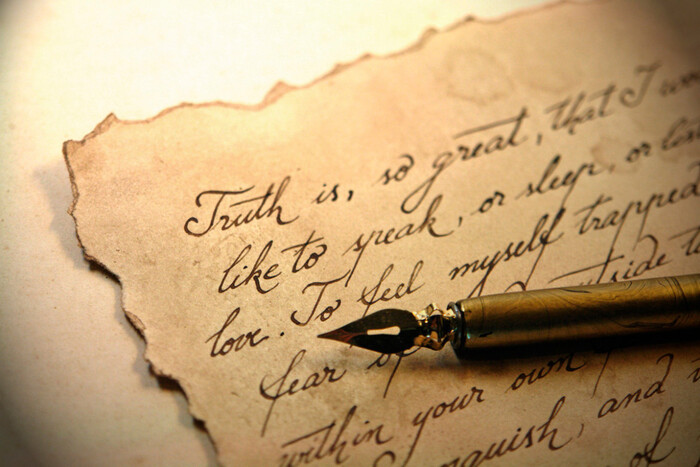 Truth is, so great, that I
like to speak, or sleep, or
love. To feel myself trapped
fear outside
within your own
and
of